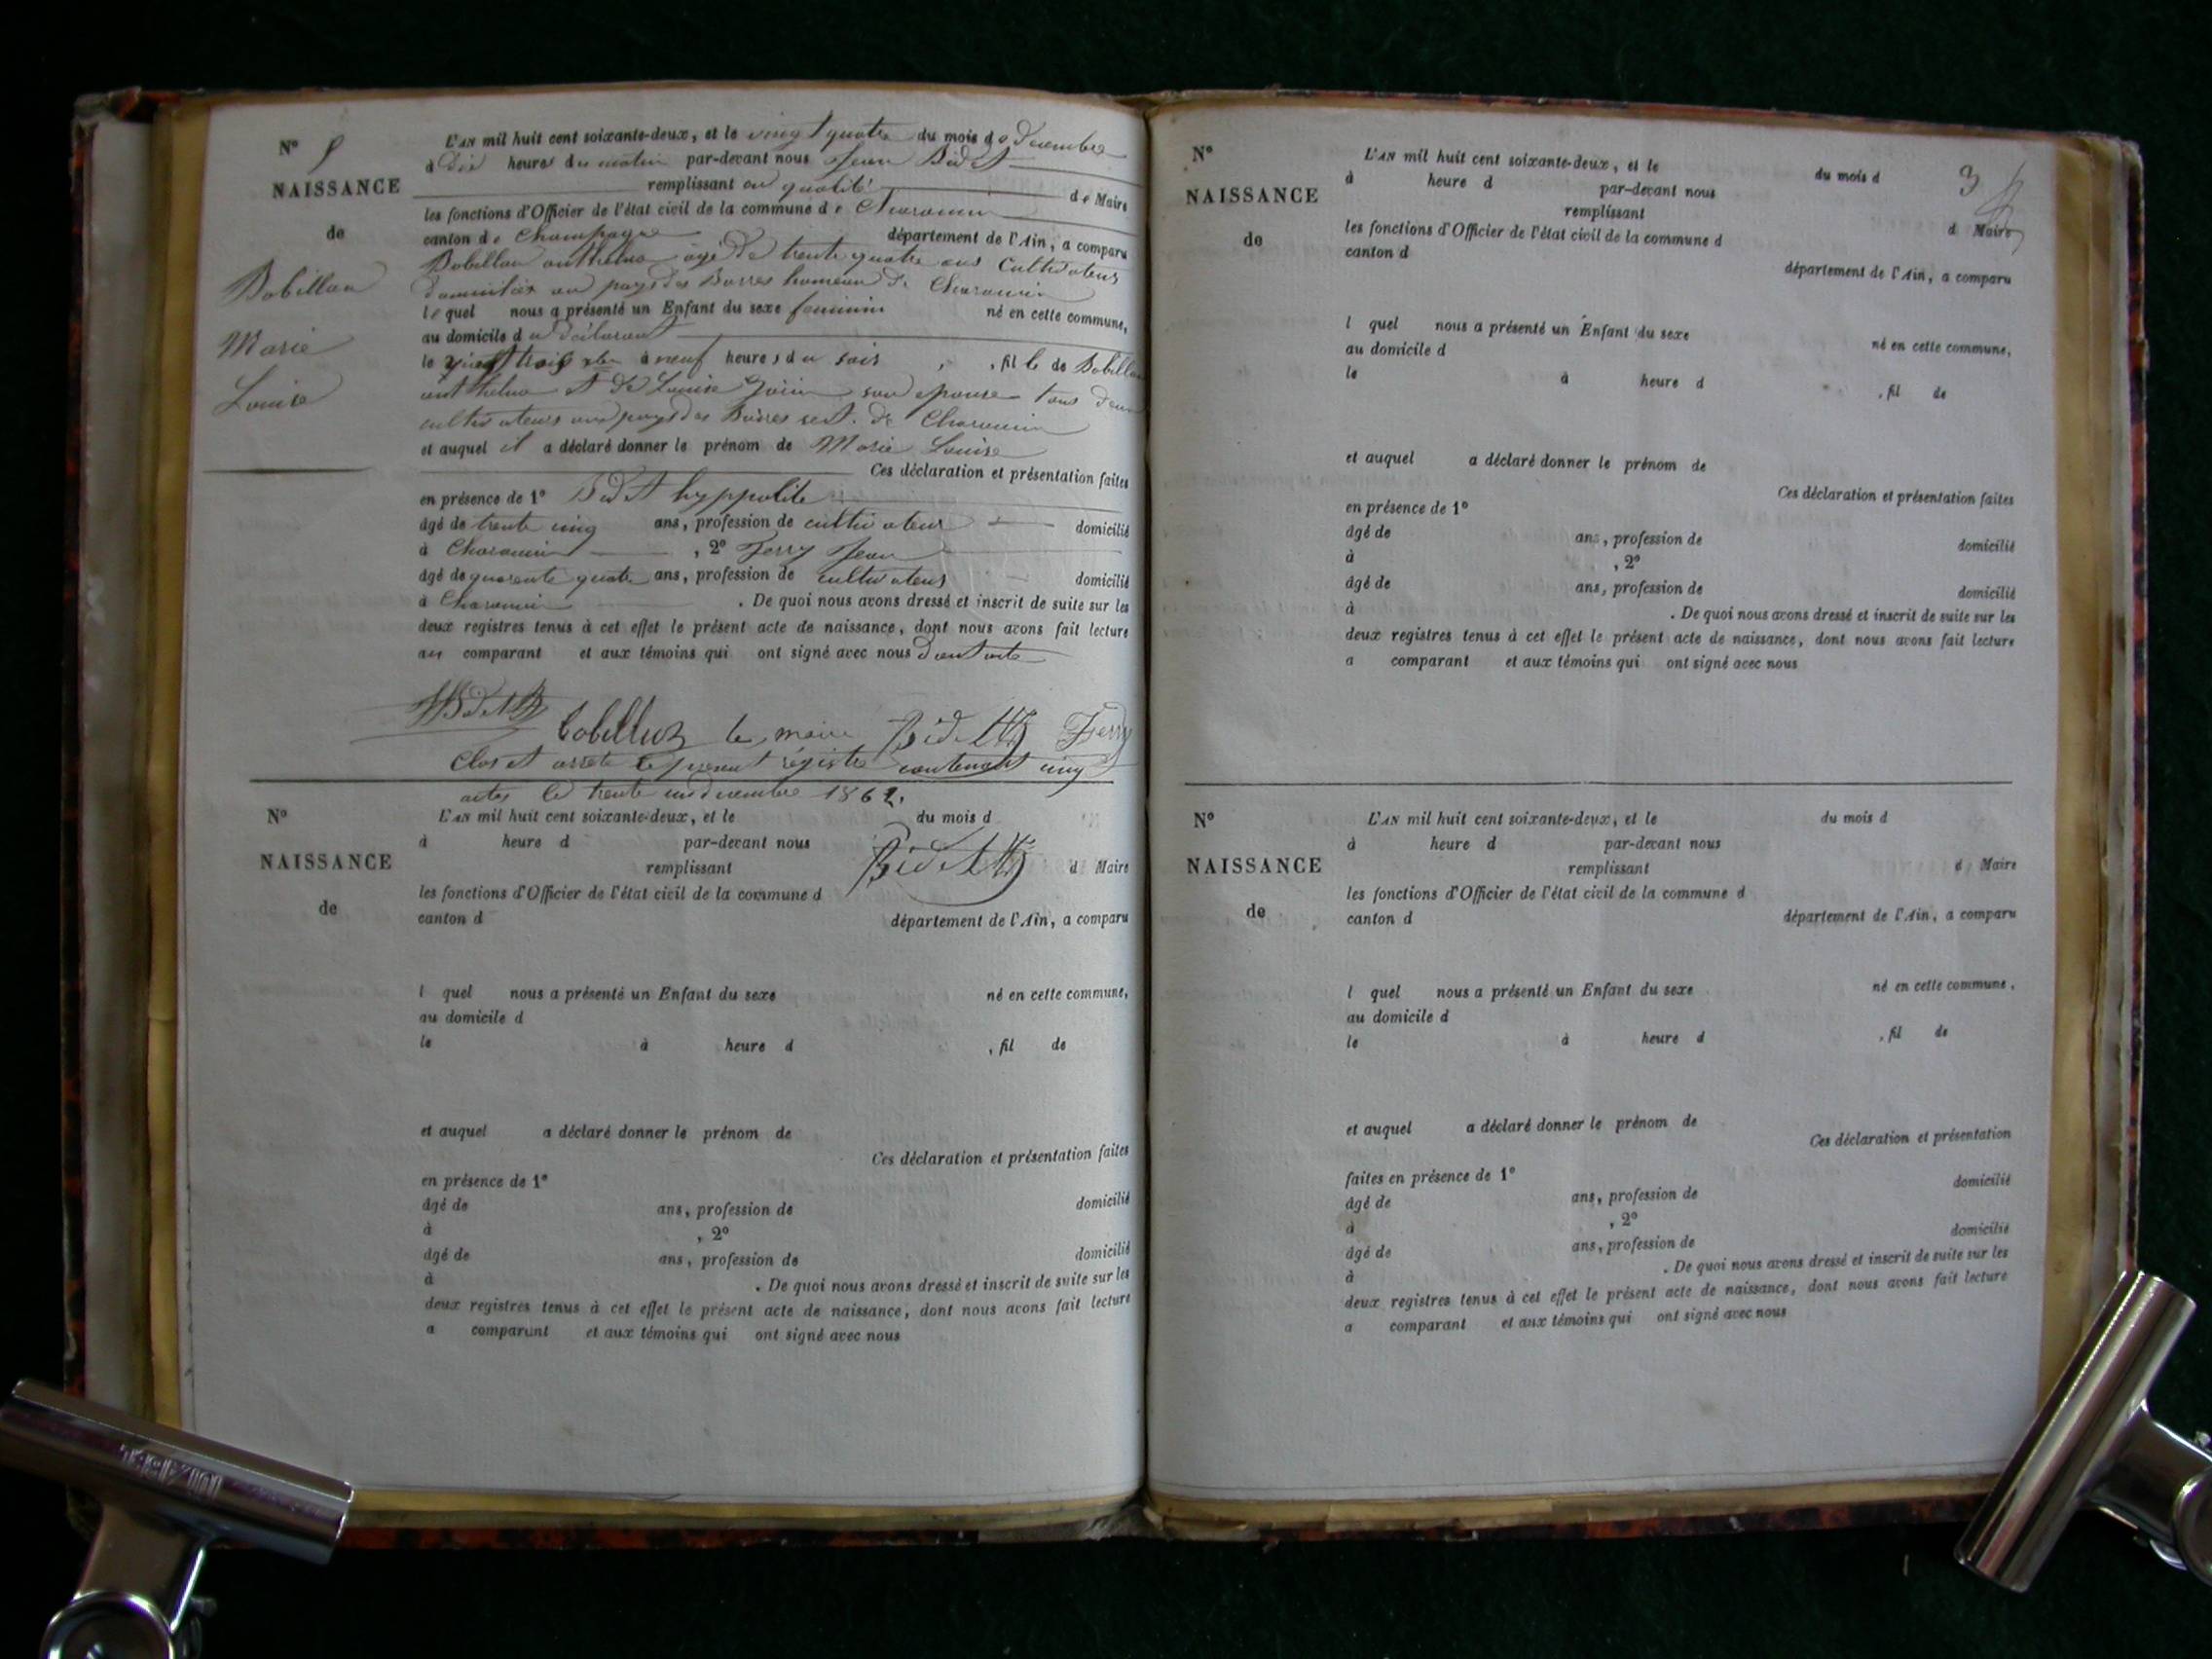 N° 5
NAISSANCE
de
Bobillon
Marie
Louise
L'AN mil huit cent soixante-deux, et le vingt quatre du mois de Décembre
à Dix heures du matin par-devant nous Jean Bidet
remplissant en qualité de Maire
les fonctions d'Officier de l'état civil de la commune de Charancin
canton de Champagne département de l'Ain, a comparu
Bobillon anthelme âgé de trente quatre ans Cultivateur
domicilié au pays des Barres hameau de Charancin
lequel nous a présenté un Enfant du sexe feminin né en cette commune,
au domicile du déclarant
le vingt trois xbre à neuf heures du soir, fille de Bobillon
anthelme et de Louise son épouse tous deux
cultivateurs au pays des Barres de Charancin
et auquel il a déclaré donner le prénom de Marie Louise
Ces déclaration et présentation faites
en présence de 1° Bidet hyppolite
âgé de trente cinq ans, profession de cultivateur domicilié
à Charancin, 2° Ferry Jean
âgé de quarante quatre ans, profession de cultivateur domicilié
à Charancin. De quoi nous avons dressé et inscrit de suite sur les
deux registres tenus à cet effet le présent acte de naissance, dont nous avons fait lecture
au comparant et aux témoins qui ont signé avec nous
Bidet bobillon le maire Bidet Ferry
Clos et arrêté le présent régistre contenant cinq
actes le trente un décembre 1862.
N°
NAISSANCE
de
L'AN mil huit cent soixante-deux, et le du mois d
à heure d par-devant nous Bidet
remplissant d Maire
les fonctions d'Officier de l'état civil de la commune d
canton d département de l'Ain, a comparu
l quel nous a présenté un Enfant du sexe né en cette commune,
au domicile d
le à heure d , fil de
et auquel a déclaré donner le prénom de
Ces déclaration et présentation faites
en présence de 1°
âgé de ans, profession de domicilié
à , 2°
âgé de ans, profession de domicilié
à . De quoi nous avons dressé et inscrit de suite sur les
deux registres tenus à cet effet le présent acte de naissance, dont nous avons fait lecture
a comparant et aux témoins qui ont signé avec nous
3
N°
NAISSANCE
de
L'AN mil huit cent soixante-deux, et le du mois d
à heure d par-devant nous
remplissant d Maire
les fonctions d'Officier de l'état civil de la commune d
canton d département de l'Ain, a comparu
l quel nous a présenté un Enfant du sexe né en cette commune,
au domicile d
le à heure d , fil de
et auquel a déclaré donner le prénom de
Ces déclaration et présentation faites
en présence de 1°
âgé de ans, profession de domicilié
à , 2°
âgé de ans, profession de domicilié
à . De quoi nous avons dressé et inscrit de suite sur les
deux registres tenus à cet effet le présent acte de naissance, dont nous avons fait lecture
a comparant et aux témoins qui ont signé avec nous
N°
NAISSANCE
de
L'AN mil huit cent soixante-deux, et le du mois d
à heure d par-devant nous
remplissant d Maire
les fonctions d'Officier de l'état civil de la commune d
canton d département de l'Ain, a comparu
l quel nous a présenté un Enfant du sexe né en cette commune,
au domicile d
le à heure d , fil de
et auquel a déclaré donner le prénom de
Ces déclaration et présentation
faites en présence de 1°
âgé de ans, profession de domicilié
à , 2°
âgé de ans, profession de domicilié
à . De quoi nous avons dressé et inscrit de suite sur les
deux registres tenus à cet effet le présent acte de naissance, dont nous avons fait lecture
a comparant et aux témoins qui ont signé avec nous